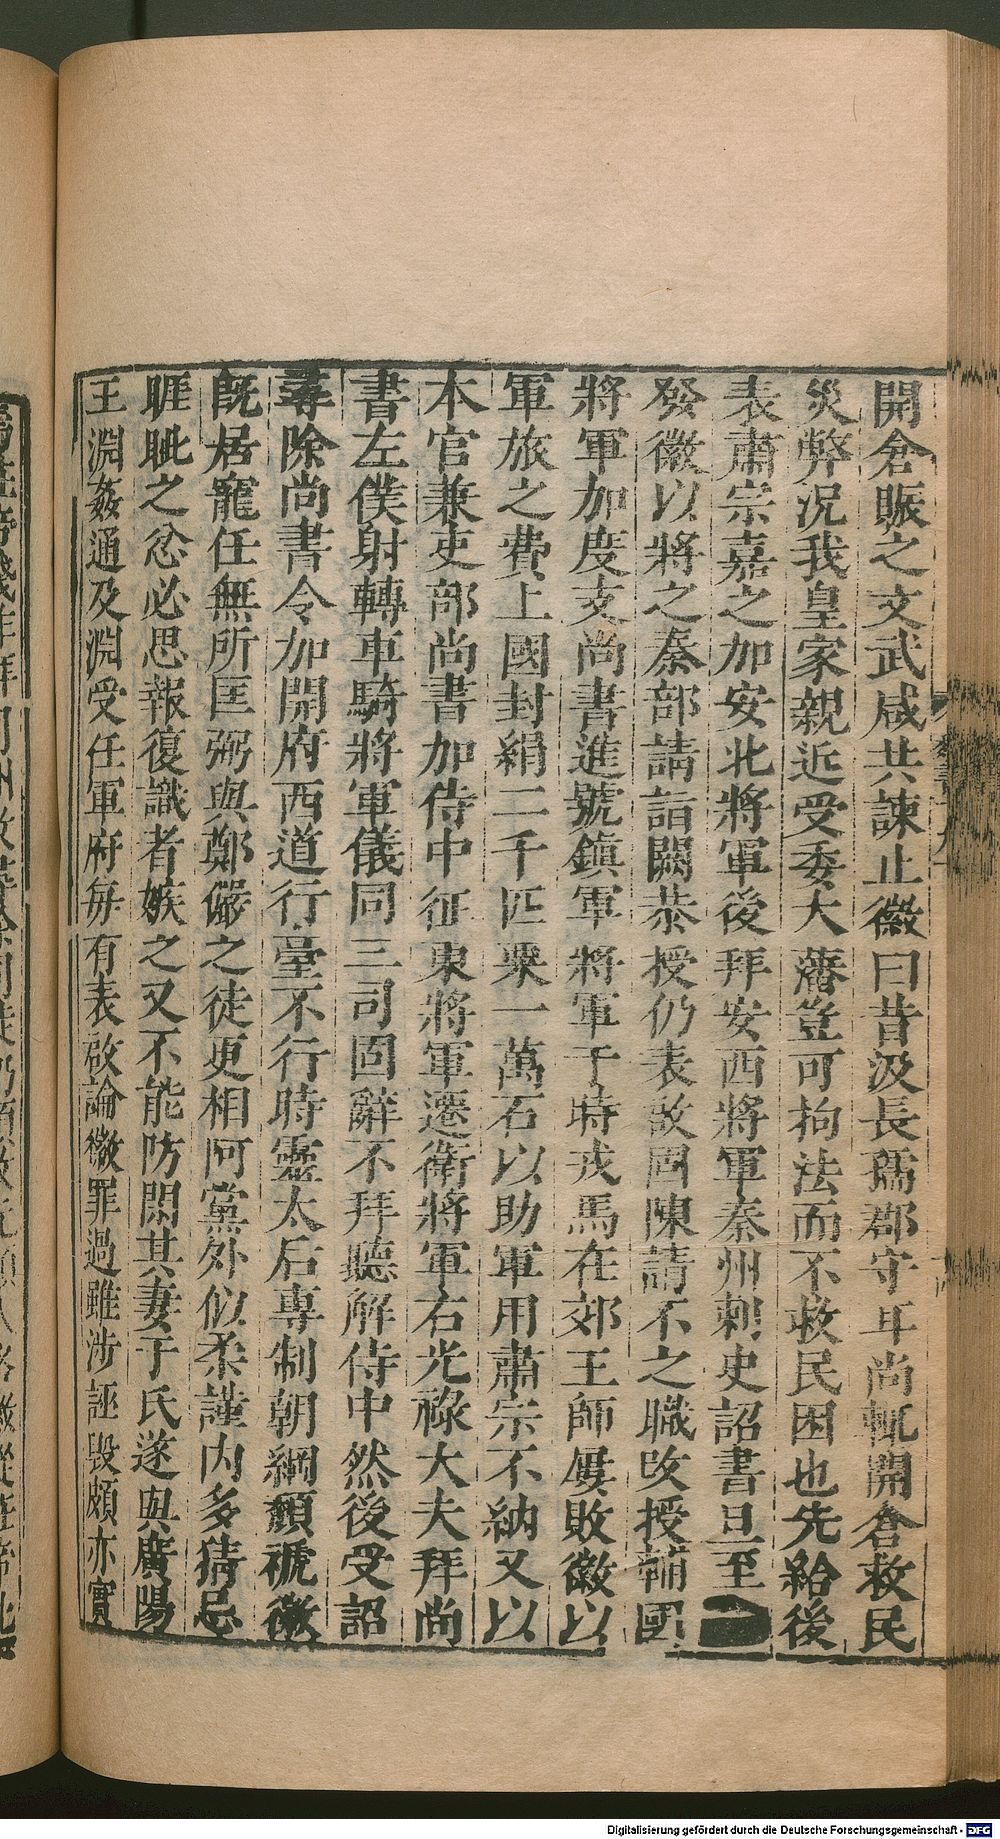 開倉賑之文武咸共諫止徽曰昔汲長孺郡守耳尚輒開倉救民
災弊況我皇家親近受委大藩豈可拘法而不救民困也先給後
表肅宗嘉之加安北將軍後拜安西將軍秦州刺史詔書旦至
發徽以將之秦部請詣闕恭授仍表啟固陳請不之職改授輔國
將軍加度支尚書進號鎮軍將軍于時戎馬在郊王師屢敗徽以
軍旅之費上國封絹二千匹粟一萬石以助軍用肅宗不納又以
本官兼吏部尚書加侍中征東將軍遷衛將軍右光祿大夫拜尚
書左僕射轉車騎將軍儀同三司固辭不拜聽解侍中然後受詔
尋除尚書令加開府西道行臺不行時靈太后專制朝綱頹褫徽
既居寵任無所匡弼與鄭儼之徒更相阿黨外似柔謹内多猜忌
睚眦之忿必思報復識者嫉之又不能防閑其妻于氏遂與廣陽
王淵姦通及淵受任軍府每有表啟論徽罪過雖涉誣毀頗亦實
Digitalisierung gefördert durch die Deutsche Forschungsgemeinschaft - DFG